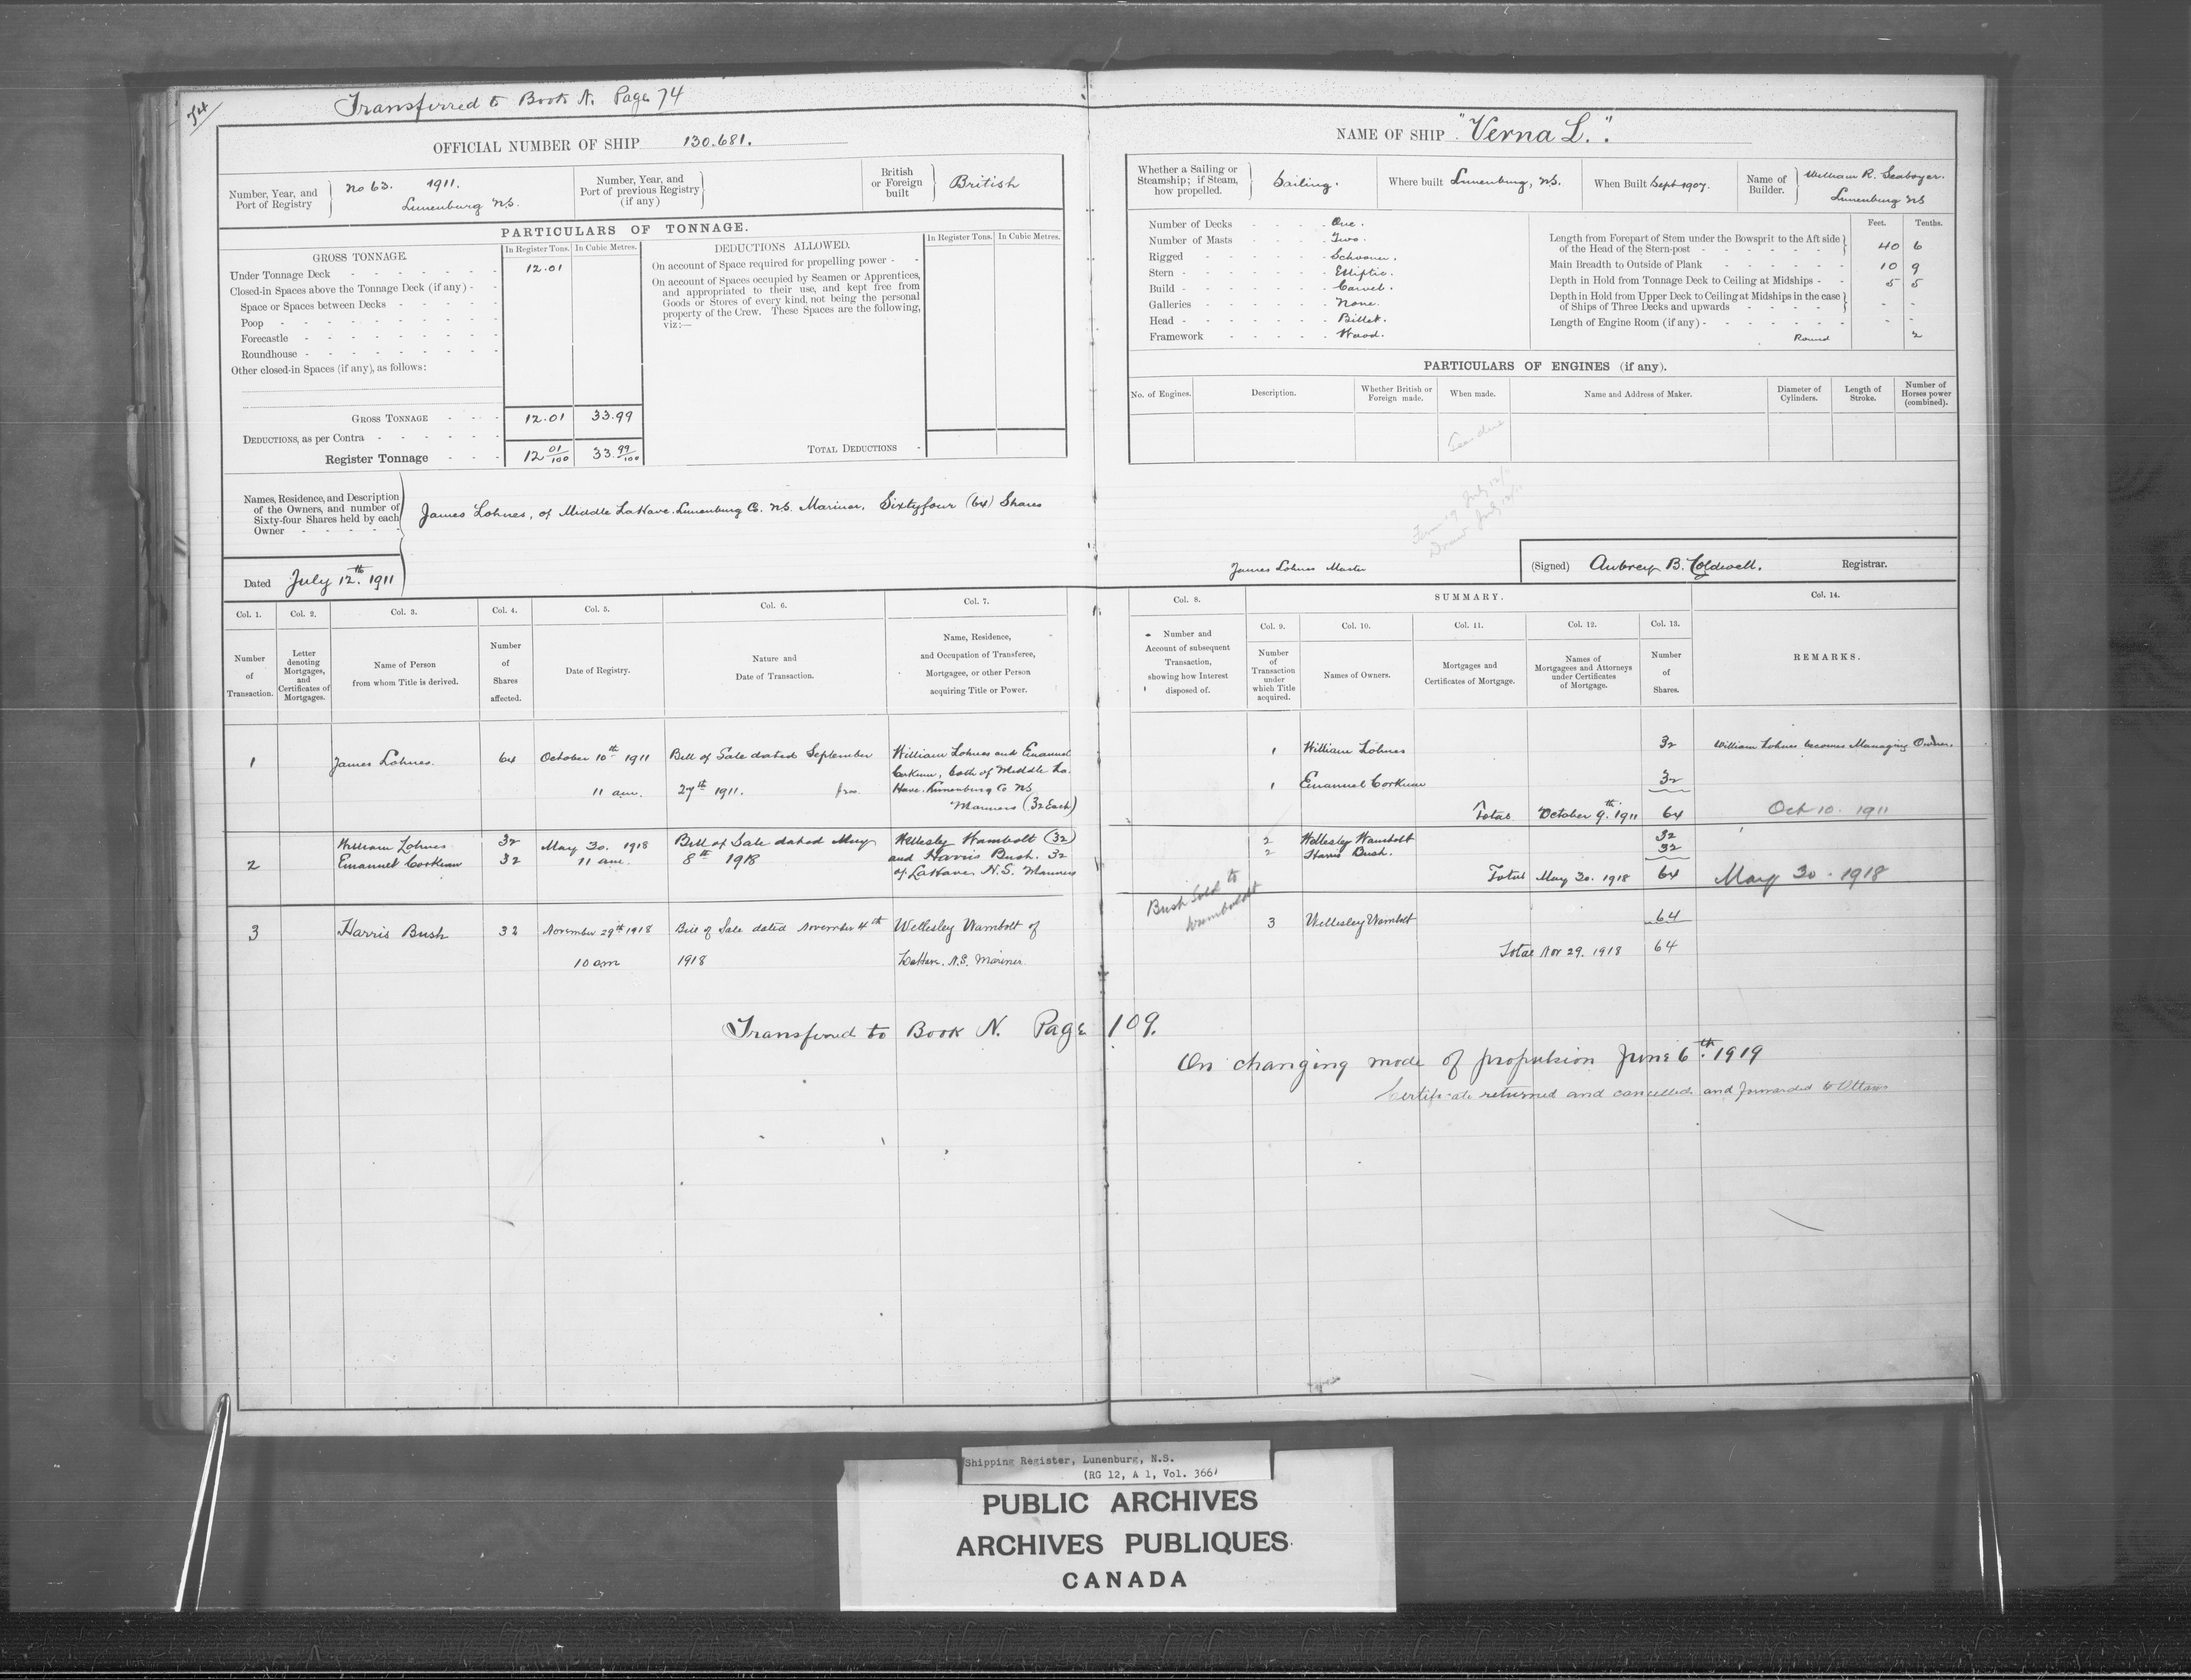 54
Transferred to Book N. Page 74
OFFICIAL NUMBER OF SHIP 130.681.
Number, Year, and Port of Registry
No 63. 1911.
Lunenburg NS.
Number, Year, and Port of previous Registry (if any)
British or Foreign built
British
PARTICULARS OF TONNAGE.
GROSS TONNAGE.
In Register Tons. In Cubic Metres.
Under Tonnage Deck 12.01
Closed-in Spaces above the Tonnage Deck (if any)
Space or Spaces between Decks
Poop
Forecastle
Roundhouse
Other closed-in Spaces (if any), as follows:
GROSS TONNAGE 12.01 33.99
DEDUCTIONS, as per Contra
Register Tonnage 12 01/100 33. 99/100
DEDUCTIONS ALLOWED.
In Register Tons. In Cubic Metres.
On account of Space required for propelling power
On account of Spaces occupied by Seamen or Apprentices,
and appropriated to their use, and kept free from
Goods or Stores of every kind, not being the personal
property of the Crew. These Spaces are the following,
viz:—
TOTAL DEDUCTIONS
Names, Residence, and Description
of the Owners, and number of
Sixty-four Shares held by each
Owner
James Lohnes, of Middle LaHave. Lunenburg Co. NS. Mariner. Sixtyfour (64) Shares
Dated July 12th. 1911
NAME OF SHIP "Verna L.".
Whether a Sailing or Steamship; if Steam, how propelled.
Sailing.
Where built Lunenburg, NS.
When Built Sept 1907.
Name of Builder.
William R. Seaboyer.
Lunenburg NS
Number of Decks One.
Number of Masts Two.
Rigged Schooner.
Stern Elliptic.
Build Carvel.
Galleries None.
Head Billet.
Framework Wood.
Feet. Tenths.
Length from Forepart of Stem under the Bowsprit to the Aft side
of the Head of the Stern-post 40 6
Main Breadth to Outside of Plank 10 9
Depth in Hold from Tonnage Deck to Ceiling at Midships 5 5
Depth in Hold from Upper Deck to Ceiling at Midships in the case
of Ships of Three Decks and upwards
Length of Engine Room (if any)
Round 2
PARTICULARS OF ENGINES (if any).
No. of Engines.
Description.
Whether British or Foreign made.
When made.
Name and Address of Maker.
Diameter of Cylinders.
Length of Stroke.
Number of Horses power (combined).
James Lohnes Master
(Signed) Aubrey B. Coldwell. Registrar.
Col. 1. Col. 2. Col. 3. Col. 4. Col. 5. Col. 6. Col. 7.
Number of Transaction.
Letter denoting Mortgages, and Certificates of Mortgages.
Name of Person from whom Title is derived.
Number of Shares affected.
Date of Registry.
Nature and Date of Transaction.
Name, Residence, and Occupation of Transferee, Mortgagee, or other Person acquiring Title or Power.
Col. 8. SUMMARY. Col. 14.
Col. 9. Col. 10. Col. 11. Col. 12. Col. 13.
Number and Account of subsequent Transaction, showing how Interest disposed of.
Number of Transaction under which Title acquired.
Names of Owners.
Mortgages and Certificates of Mortgage.
Names of Mortgagees and Attorneys under Certificates of Mortgage.
Number of Shares.
REMARKS.
1 James Lohnes. 64 October 10th 1911 Bill of Sale dated September William Lohnes and Emanuel
Corkum, both of Middle La
11 am. 27th 1911. Have. Lunenburg Co NS
Mariners (32 Each)
1 William Lohnes 32 William Lohnes becomes Managing Owner.
1 Emanuel Corkum 32
Total October 9th. 1911 64 Oct 10. 1911
William Lohnes 32 May 30. 1918 Bill of Sale dated May Wellesley Wambolt (32)
2 Emanuel Corkum 32 11 am. 8th 1918 and Harris Bush. 32
of LaHave N.S. Mariners
2 Wellesley Wambolt 32
2 Harris Bush. 32
Total May 30. 1918 64 May 30. 1918
Bush Sold to
Wamboldt
3 Harris Bush 32 November 29th 1918 Bill of Sale dated November 4th Wellesley Wambolt of
10 am 1918 LaHave. N.S. Mariner.
3 Wellesley Wambolt 64
Total Nov 29. 1918 64
Transferred to Book N. Page 109.
On changing mode of propulsion June 6th. 1919
Certificate returned and cancelled and forwarded to Ottawa
Shipping Register, Lunenburg, N.S.
(RG 12, A 1, Vol. 366)
PUBLIC ARCHIVES
ARCHIVES PUBLIQUES
CANADA